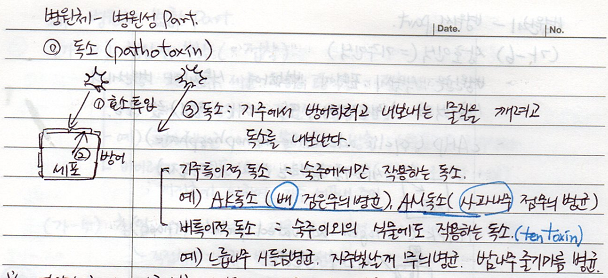 병원체 - 병원성 Part.
Date. No.
① 독소 (pathotoxin)
①효소투입
③ 독소 : 기주에서 방어하려고 내보내는 물질을 깨려고
독소를 내보낸다.
② 방어
세포
기주특이적 독소 : 숙주에서만 작용하는 독소.
예) AK독소 (배 검은무늬병균), AM독소 (사과나무 점무늬병균)
비특이적 독소 : 숙주이외의 식물에도 작용하는 독소. (tentoxin)
예) 느릅나무 시들음병균. 자주빛날개무늬병균. 밤나무 줄기마름병균